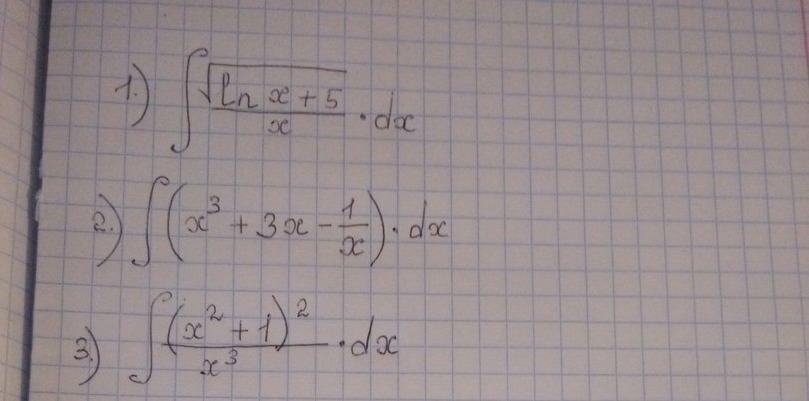 1.) ∫ √(ln x + 5) / x · dx
2.) ∫ (x³ + 3x - 1/x) · dx
3.) ∫ (x² + 1)² / x³ · dx